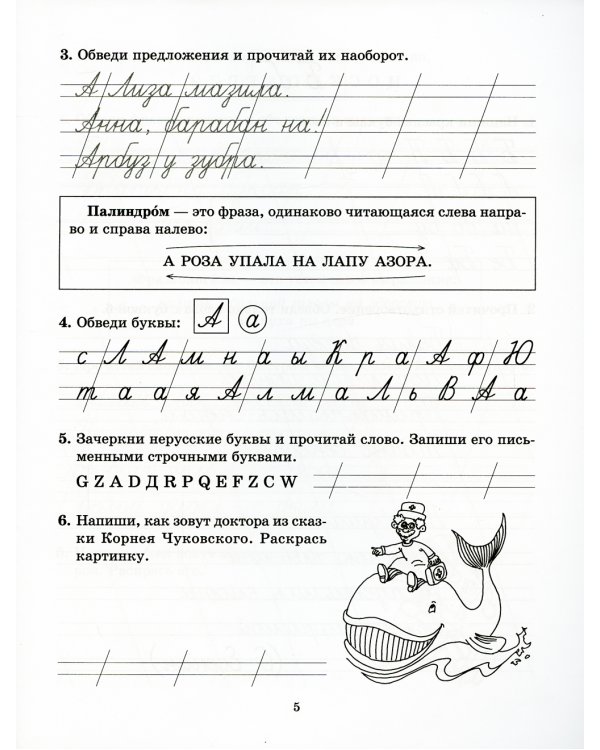 3. Обведи предложения и прочитай их наоборот.
А Лиза мазила.
Анна, барабан на!
Арбуз у зубра.
Палиндро́м — это фраза, одинаково читающаяся слева напра-
во и справа налево:
А РОЗА УПАЛА НА ЛАПУ АЗОРА.
4. Обведи буквы: А а
с Л А м н а ы К р а А ф Ю
т а а я А л м а Л ь В А а
5. Зачеркни нерусские буквы и прочитай слово. Запиши его пись-
менными строчными буквами.
G Z A D Д R P Q E F Z C W
6. Напиши, как зовут доктора из сказ-
ки Корнея Чуковского. Раскрась
картинку.
5